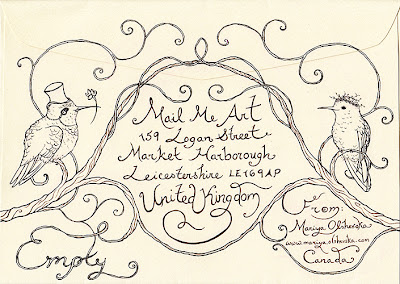 Mail Me Art
159 Logan Street
Market Harborough
Leicestershire LE16 9AP
United Kingdom
From:
Mariya Olshevska
www.mariya-olshevska.com
Canada
Empty